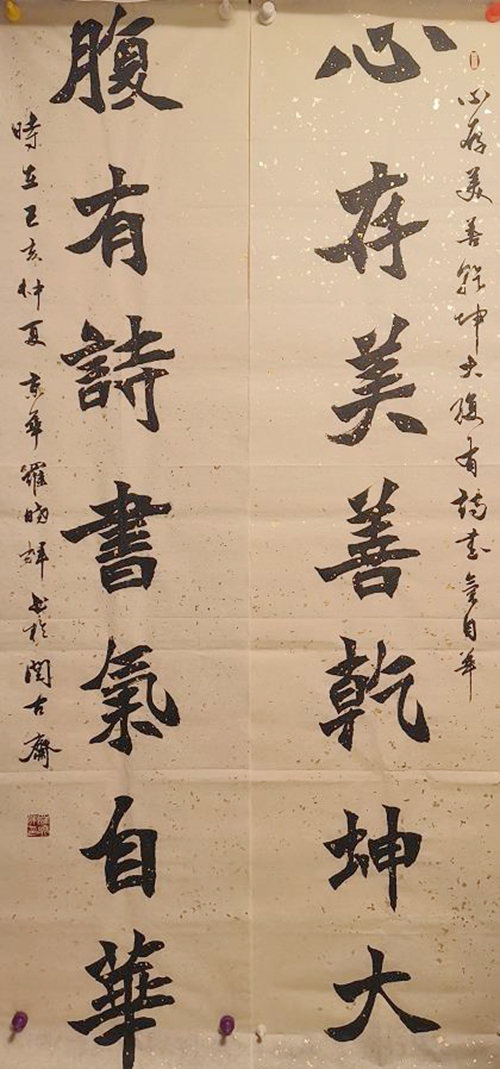 心存美善乾坤大腹有詩書氣自華
心存美善乾坤大
腹有詩書氣自華
時在己亥仲夏京華羅曉輝書於閱古齋